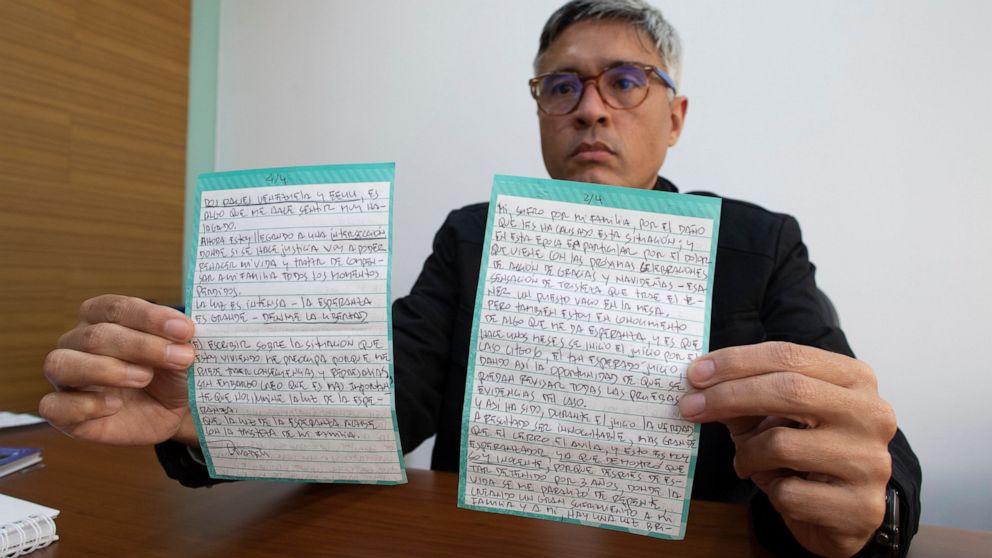 4/4
DOS PAISES VENEZUELA Y EEUU, ES
ALGO QUE ME HACE SENTIR MUY HA-
LAGADO.
AHORA ESTOY LLEGANDO A UNA INTERSECCIÓN
DONDE SI SE HACE JUSTICIA VOY A PODER
REHACER MI VIDA Y TRATAR DE COMPEN-
SAR A MI FAMILIA TODOS LOS MOMENTOS
PERDIDOS.
LA LUZ ES INTENSA - LA ESPERANZA
ES GRANDE - DENME LA LIBERTAD
EL ESCRIBIR SOBRE LA SITUACION QUE
ESTOY VIVIENDO ME PREOCUPA PORQUE ME
PUEDE TRAER CONSECUENCIAS Y REPRESALIAS
SIN EMBARGO CREO QUE ES MAS IMPORTAN-
TE QUE NOS ILUMINE LA LUZ DE LA ESPE-
RANZA.
QUE LA LUZ DE LA ESPERANZA ACABE
CON LA TRISTEZA DE MI FAMILIA.
2/4
MI, SUFRO POR MI FAMILIA POR EL DAÑO
QUE LES HA CAUSADO ESTA SITUACIÓN; Y
EN ESTA EPOCA EN PARTICULAR POR EL DOLOR
QUE VIENE CON LAS PROXIMAS CELEBRACIONES
DE ACCION DE GRACIAS Y NAVIDEÑAS - ESA
SENSACION DE TRISTEZA QUE TRAE EL TE-
NER UN PUESTO VACIO EN LA MESA.
PERO TAMBIEN ESTOY EN CONOCIMIENTO
DE ALGO QUE ME DA ESPERANZA, Y ES QUE
HACE UNOS MESES SE INICIO EL JUICIO POR EL
CASO CITGO 6, EL TAN ESPERADO JUICIO
DANDO ASI LA OPORTUNIDAD DE QUE SE
PUEDAN REVISAR TODAS LAS PRUEBAS Y
EVIDENCIAS DEL CASO.
Y ASI HA SIDO, DURANTE EL JUICIO LA VERDAD
A RESULTADO SER INOCULTABLE, MAS GRANDE
QUE EL CERRO EL AVILA, Y ESTO ES MUY
ESPERANZADOR, YA QUE DEMOSTRO QUE
SOY INOCENTE, PORQUE DESPUES DE ES-
TAR DETENIDO POR 3 AÑOS, DONDE LA
VIDA SE ME PARALIZO DE REPENTE,
CREANDO UN GRAN SUFRIMIENTO A MI
FAMILIA Y A MI, HAY UNA LUZ BRI-